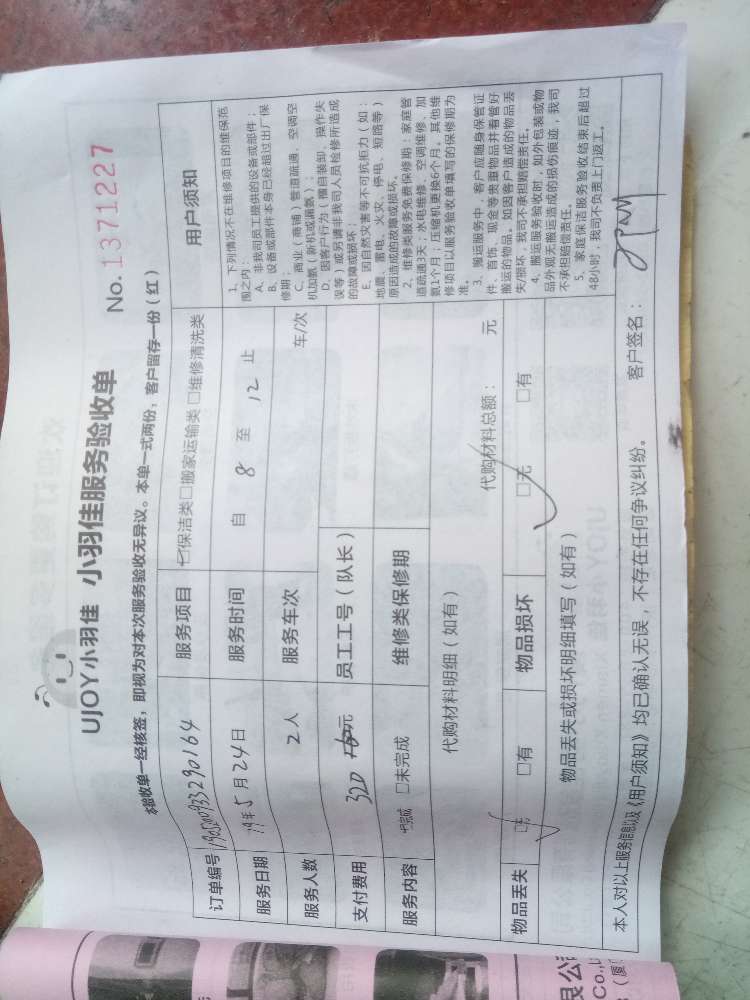 UJOY小羽佳 小羽佳服务验收单 No.1371227
本验收单一经核签，即视为对本次服务验收无异议。本单一式两份，客户留存一份（红）
订单编号 190520093329 0164 服务项目 ☑保洁类□搬家运输类 □维修清洗类
服务日期 19年5月24日 服务时间 自 8 至 12 止
服务人数 2人 服务车次 车/次
支付费用 320 元 员工工号（队长）
服务内容 ☑完成 □未完成 维修类保修期
代购材料明细（如有） 代购材料总额： 元
物品丢失 ☑无 □有 物品损坏 ☑无 □有
物品丢失或损坏明细填写（如有）
用户须知
1、下列情况不在维修项目的维保范
围之内：
A、非我司员工提供的设备或部件；
B、设备或部件本身已经超过出厂保
修期；
C、商业（商铺）管道疏通、空调空
机加氨（新机或漏氨）；
D、因客户行为（擅自装卸、操作失
误等）或另请非我司人员检修所造成
的故障或损坏；
E、因自然灾害等不可抗拒力（如：
地震、雷电、火灾、停电、短路等）
原因造成的故障或损坏。
2、维修类服务免费保修期：家庭管
道疏通3天；水电维修、空调维修、加
氨1个月；压缩机更换6个月。其他维
修项目以服务验收单填写的保修期为
准。
3、搬运服务中，客户应随身保管证
件、首饰、现金等贵重物品并看管好
搬运的物品。如因客户造成的物品丢
失/损坏，我司不承担赔偿责任。
4、搬运服务验收时，如外包装或物
品外观无搬运造成的损伤痕迹，我司
不承担赔偿责任。
5、家庭保洁服务验收结束后超过
48小时，我司不负责上门返工。
本人对以上服务信息以及《用户须知》均已确认无误，不存在任何争议纠纷。 客户签名：
限公司
Co.,L
（厦